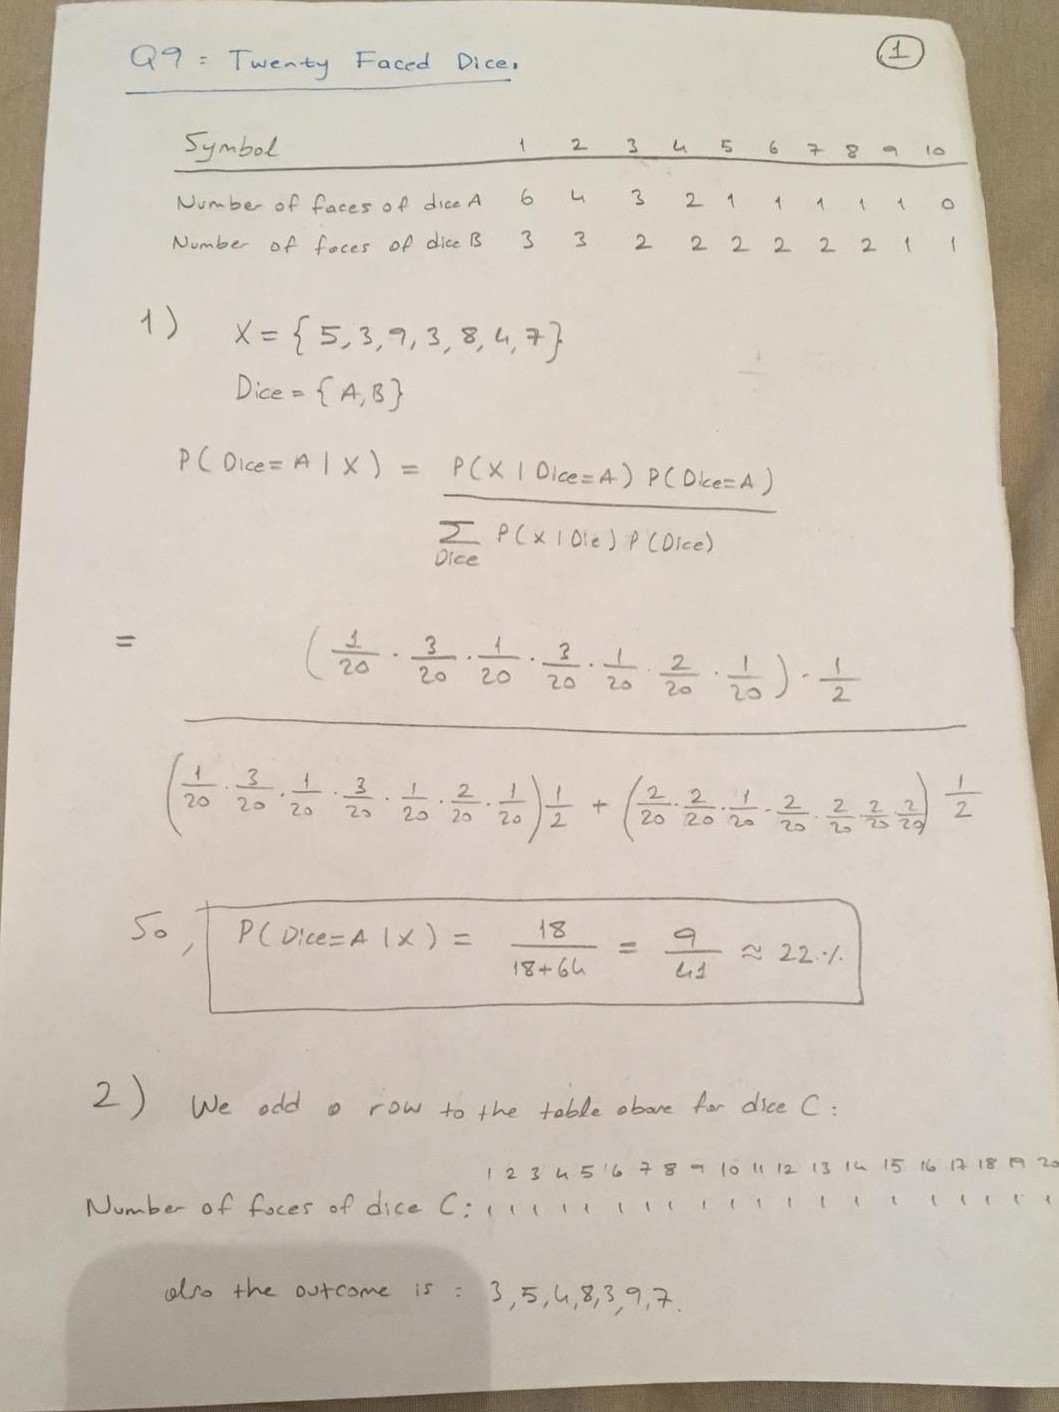 Q9 : Twenty Faced Dice.
1
Symbol 1 2 3 4 5 6 7 8 9 10
Number of faces of dice A 6 4 3 2 1 1 1 1 1 0
Number of faces of dice B 3 3 2 2 2 2 2 2 1 1
1) X = { 5, 3, 9, 3, 8, 4, 7 }
Dice = { A, B }
P( Dice = A | X ) = P( X | Dice = A ) P( Dice = A )
Σ P( X | Die ) P ( Dice )
Dice
= ( 1/20 · 3/20 · 1/20 · 3/20 · 1/20 · 2/20 · 1/20 ) · 1/2
( 1/20 · 3/20 · 1/20 · 3/20 · 1/20 · 2/20 · 1/20 ) 1/2 + ( 2/20 · 2/20 · 1/20 · 2/20 · 2/20 · 2/20 · 2/20 ) 1/2
So, P( Dice = A | X ) = 18/18+64 = 9/41 ≈ 22 %
2) We add a row to the table above for dice C :
1 2 3 4 5 6 7 8 9 10 11 12 13 14 15 16 17 18 19 20
Number of faces of dice C : 1 1 1 1 1 1 1 1 1 1 1 1 1 1 1 1 1 1 1 1
also the outcome is : 3, 5, 4, 8, 3, 9, 7.